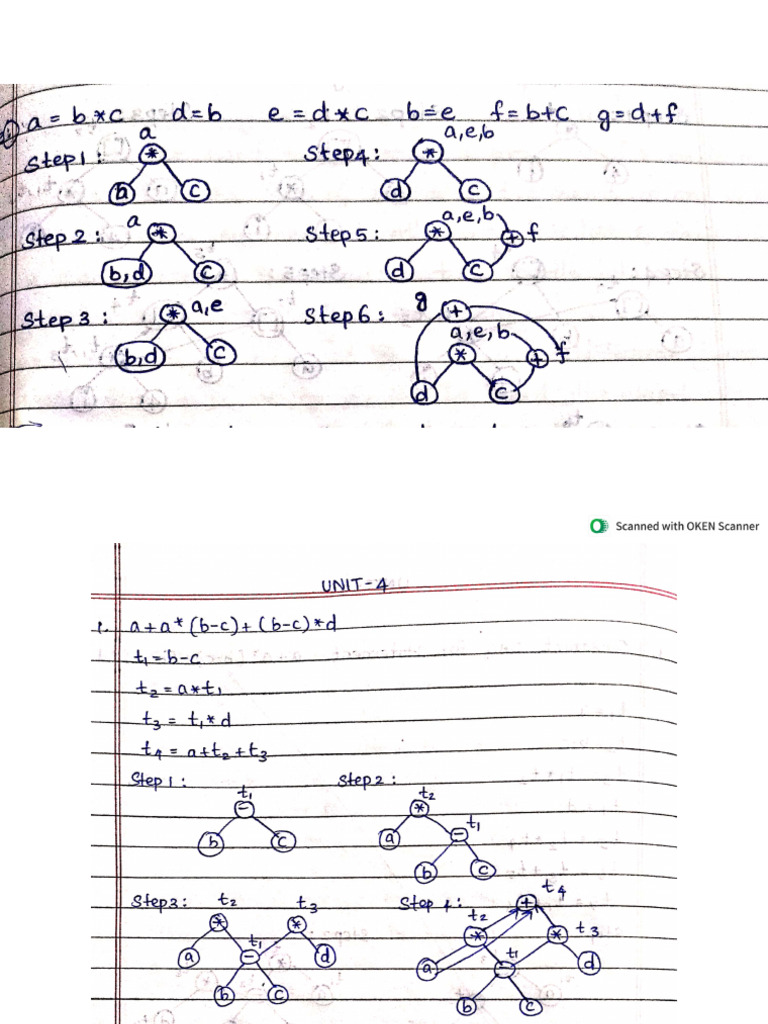 i) a = b*c d=b e = d*c b=e f=b+c g=d+f
Step1: a * a c
Step4: a,e,b * d c
Step 2: a * b,d c
Step5: a,e,b * + f d c
Step 3: * a,e b,d c
Step6: g + a,e,b * + f d c
Scanned with OKEN Scanner
UNIT-4
1. a+a*(b-c)+(b-c)*d
t1=b-c
t2=a*t1
t3 = t1*d
t4 = a+t2+t3
Step1: t1 - b c
Step2: t2 * a t1 - b c
Step3: t2 * t3 * a t1 - d b c
Step 4: t4 + t2 * t3 * a t1 - d b c